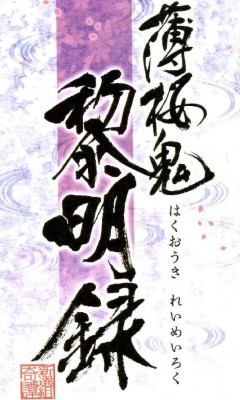 薄桜鬼
はくおうき れいめいろく
黎明録
新選組
奇譚